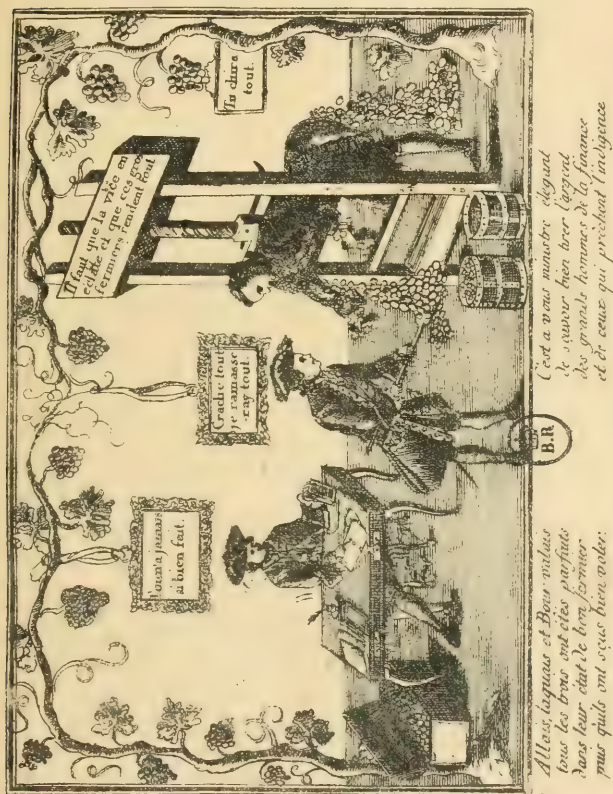 l'on n'a jamais
si bien fait.
Crache tout
je ramasse
-ray tout.
Il faut que la en
eclate et que ces gros
fermiers rendent tout
Tu dira
tout.
laquais et
tous les trois ont etés parfaits
dans leur etat de bon fermier
mais quils ont scus bien voler;
B.R
C'est a vous ministre elegant
de scavoir bien tirer l'argent
des grands hommes de la finance
et de ceux qui prechent l'indigence